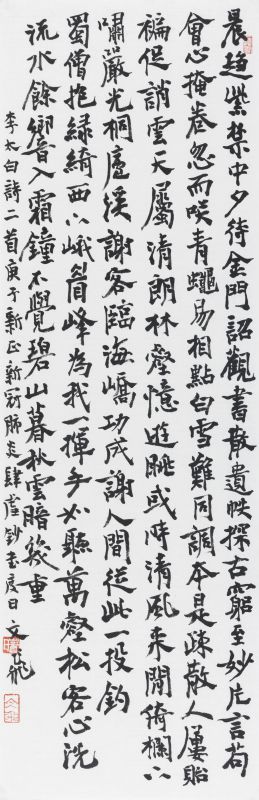 晨趨紫禁中夕待金門詔觀書散遺帙探古窮至妙片言苟
會心掩卷忽而咲青蠅易相點白雪難同調本是疎散人屢貽
褊促誚雲天屬清朗林壑憶遊眺或時清風来閒倚欄下
嘯嚴光桐廬溪謝客臨海嶠功成謝人間從此一投釣
蜀僧抱綠綺西下峨眉峰為我一揮手如聽萬壑松客心洗
流水餘響入霜鐘不覺碧山暮秋雲暗幾重
李太白詩二首庚子新正新冠肺炎肆虐鈔書度日文